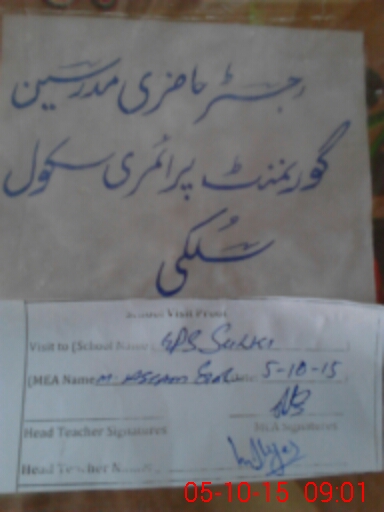 رجسٹر حاضری مدرسین
گورنمنٹ پرائمری سکول
سُلکی
School Visit Proof
Visit to [School Name: GPS Sulki
[MEA Name M. Aslam Date: 5-10-15
MEA Signatures
Head Teacher Signatures
Head Teacher
05-10-15 09:01